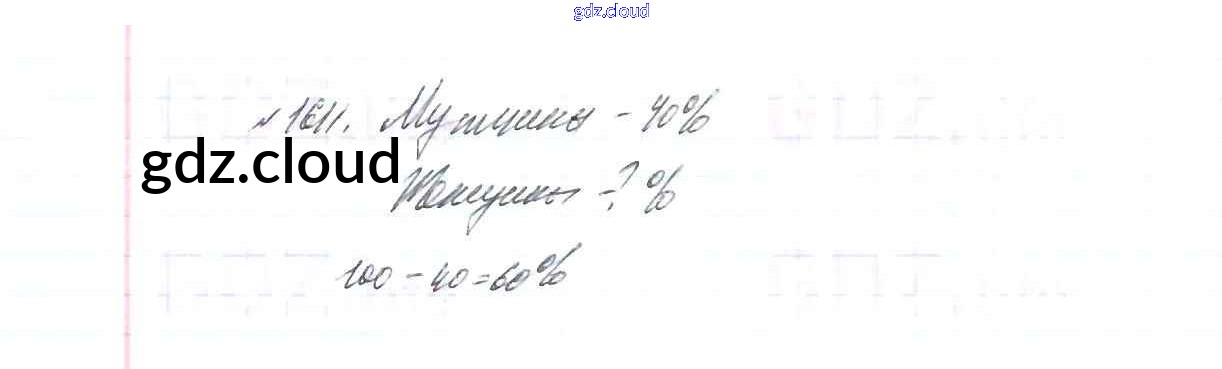 gdz.cloud
№1611. Мужчины - 40%
gdz.cloud
Женщины - ? %
100 - 40 = 60%